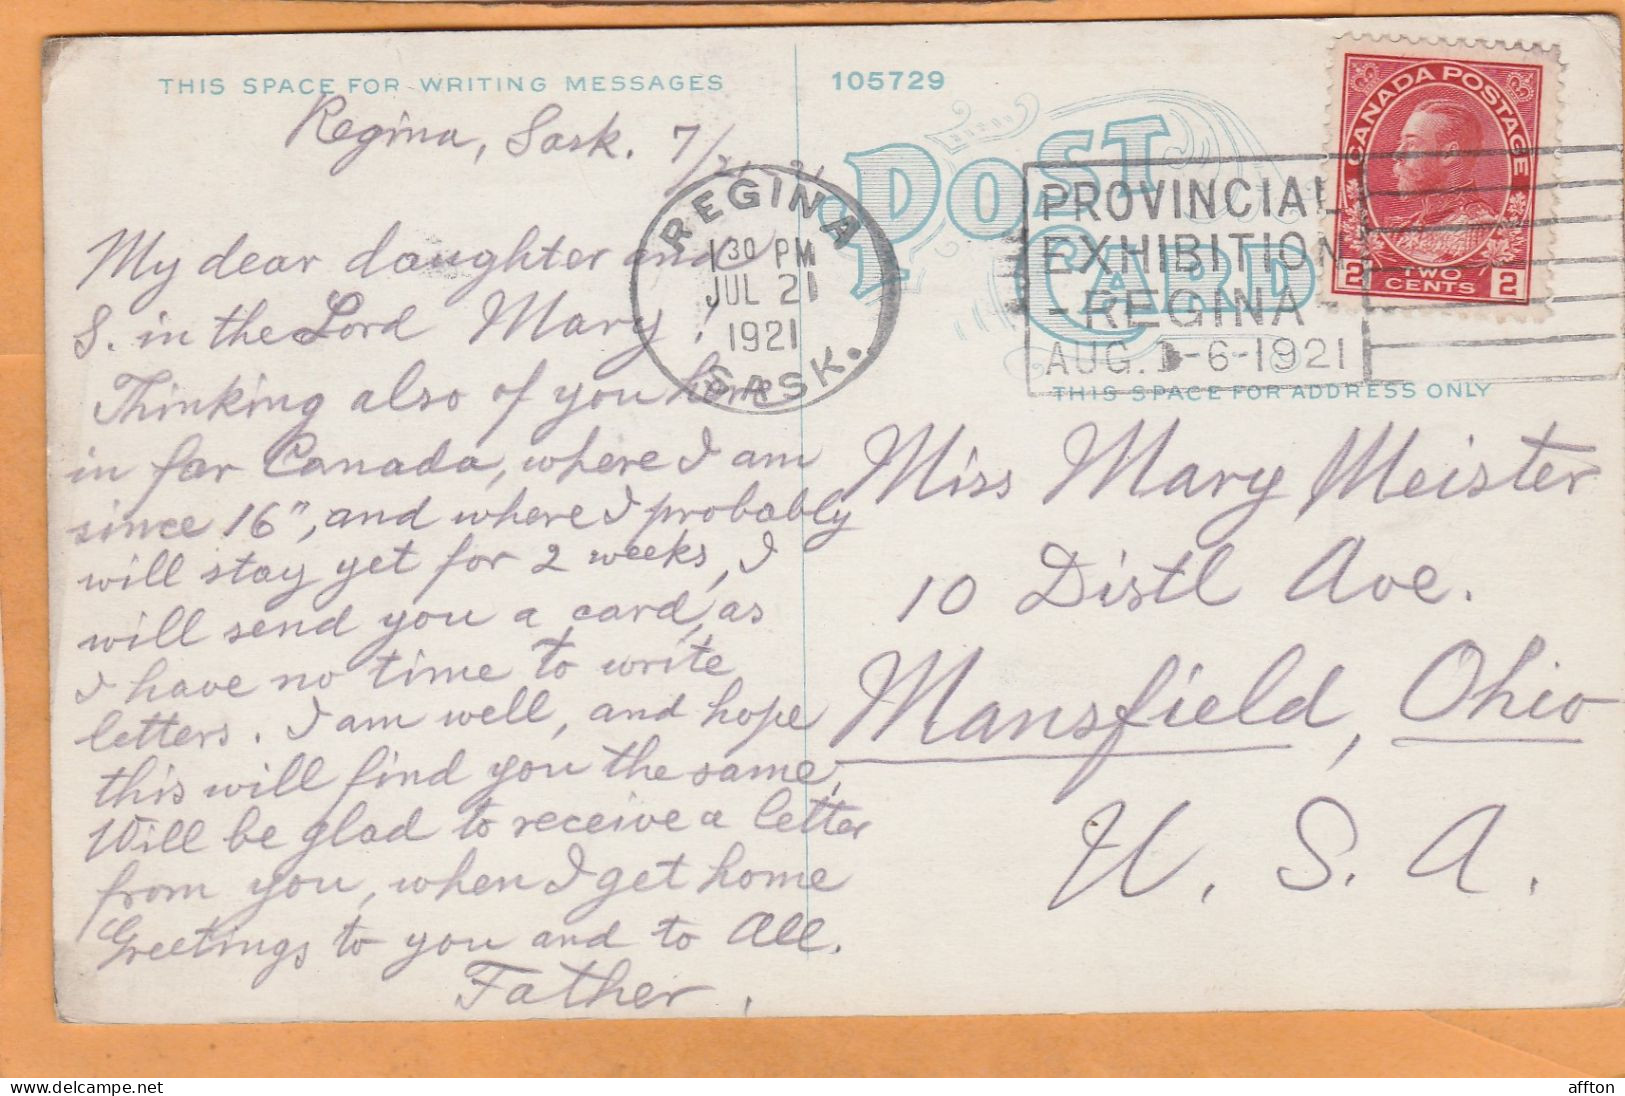 THIS SPACE FOR WRITING MESSAGES
Regina, Sask. 7/21 - 21
My dear daughter and
S. in the Lord Mary!
Thinking also of you here
in far Canada, where I am
since 16", and where I probably
will stay yet for 2 weeks, I
will send you a card, as
I have no time to write
letters. I am well, and hope
this will find you the same,
Will be glad to receive a letter
from you, when I get home
Greetings to you and to All.
Father.
REGINA
1 30 PM
JUL 21
1921
SASK.
105729
POST
CARD
PROVINCIAL
EXHIBITION
-REGINA
AUG. 1-6-1921
CANADA POSTAGE
2 TWO CENTS 2
THIS SPACE FOR ADDRESS ONLY
Miss Mary Meister
10 Distl Ave.
Mansfield, Ohio
U. S. A.
affton